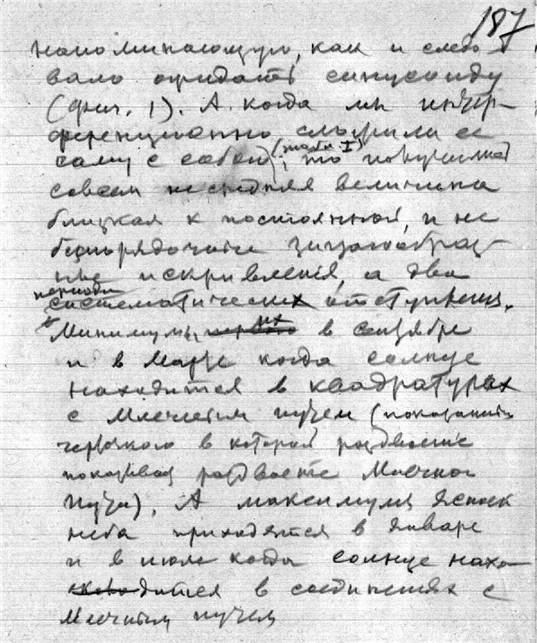 187
напоминающую, как и следо
вало ожидать синусоиду
(фиг. 1). А когда мы интер-
ференционно сложили ее
саму с собой (табл. I), то получилась
совсем не средняя величина
близкая к постоянной, и не
беспорядочные зигзагообраз-
ные искривления, а два
периоди
систематических отступления.
Минимумы их в сентябре
и в марте когда солнце
находится в квадратурах
с Млечным путем (показания
в которой раздвоение
раздвоение Млечного
пути), А максимумы ясных
неба приходятся в январе
и в июле когда солнце нахо-
дится в соединениях с
Млечным путем